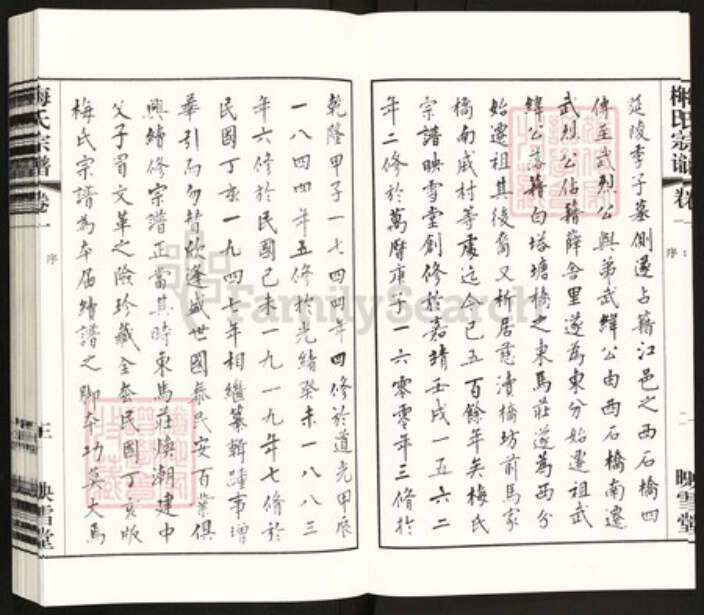 梅氏宗譜 卷一
序
二
映雪堂
延陵季子墓側遂占籍江邑之西石橋四
傳至武烈公與弟武緯公由西石橋南遷
武烈公佔籍薛舍里遂為東分始遷祖武
緯公落籍白塔塘橋之東馬莊遂為西分
始遷祖其後裔又析居慈瀆橋坊前馬家
橋南戚村等處迄今已五百餘年矣梅氏
宗譜映雪堂創修於嘉靖壬戌一五六二
年二修於萬曆庚子一六零零年三修於
乾隆甲子一七四四年四修於道光甲辰
一八四四年五修於光緒癸未一八八三
年六修於民國己未一九一九年七修於
民國丁亥一九四七年相繼纂輯踵事增
華引而勿替欣逢盛世國泰民安百業俱
興續修宗譜正當其時東馬莊煥潮建中
父子冒文革之險珍藏全套民國丁亥版
梅氏宗譜為本届續譜之脚本功莫大焉
梅氏宗譜 卷一
序
三
映雪堂
FamilySearch